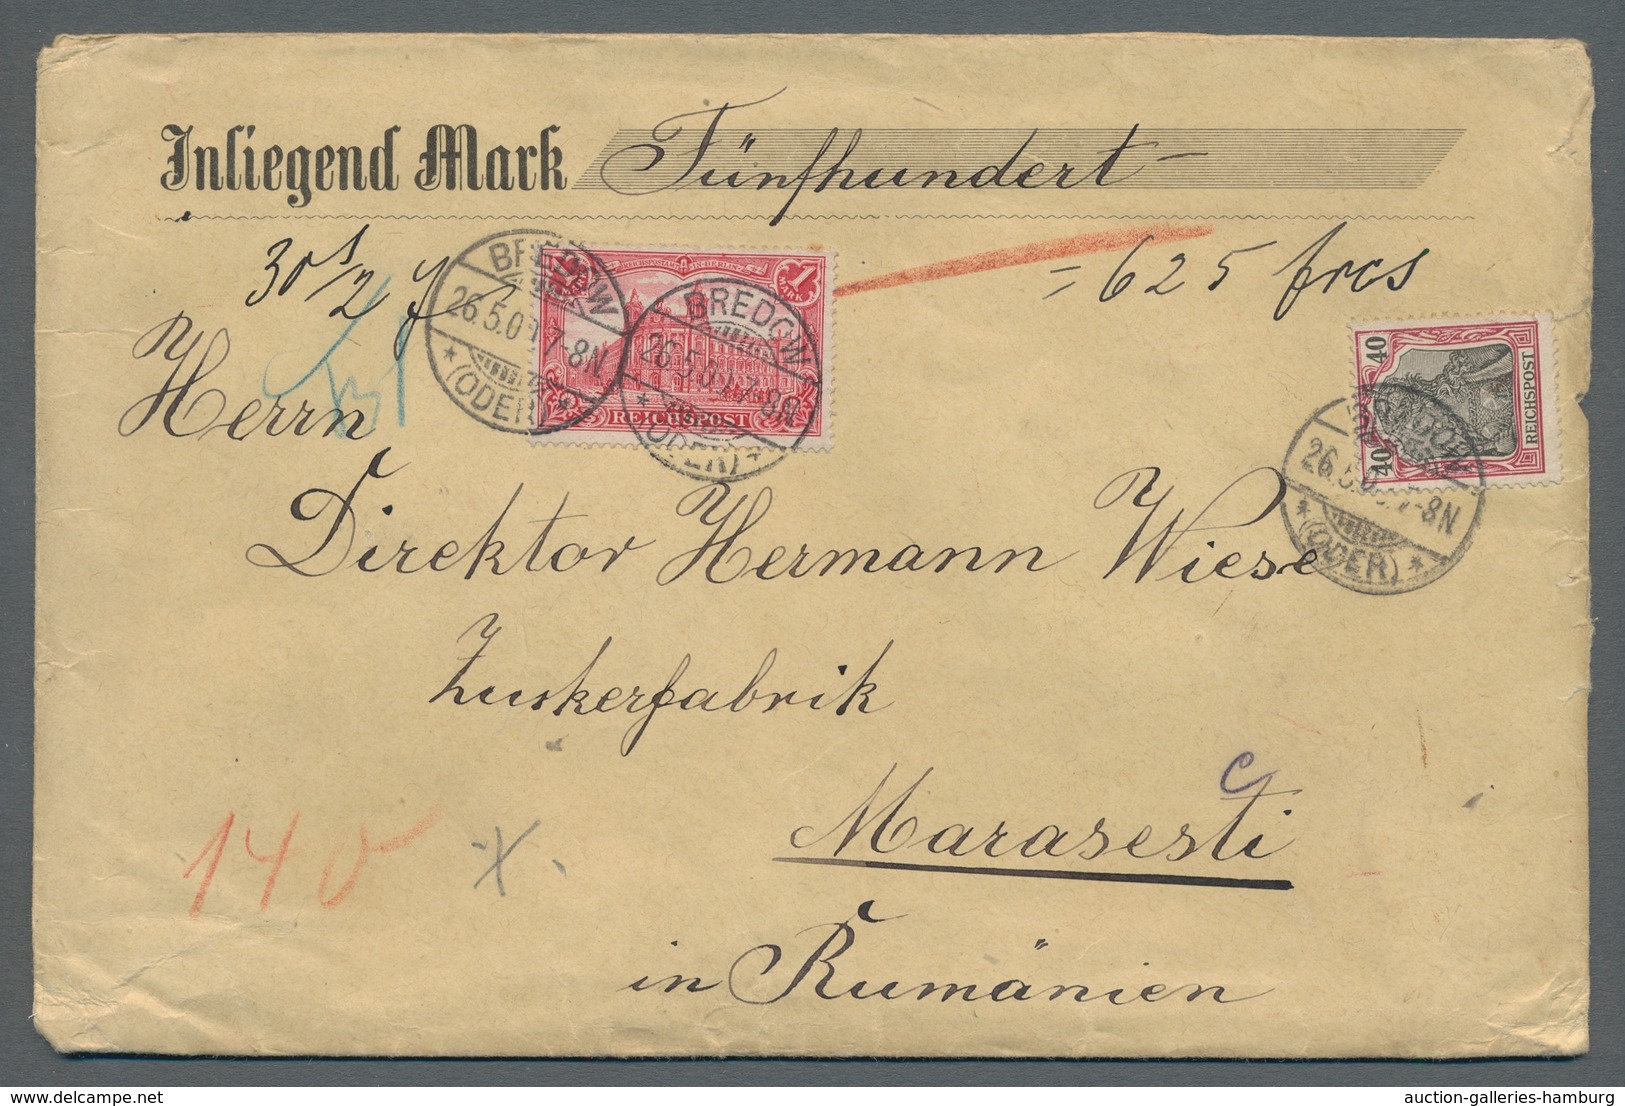 Inliegend Mark Fünfhundert
30 1/2 g
= 625 frcs
1 MARK
REICHSPOSTAMT IN BERLIN
REICHSPOST
BREDOW
26.5.0 7-8N
* (ODER) *
BREDOW
26.5.0 7-8N
* (ODER) *
40 40
REICHSPOST
BREDOW
26.5.0 7-8N
* (ODER) *
Herrn
Direktor Hermann Wiese
Zuckerfabrik
Marasesti
in Rumänien
140
auction-galleries-hamburg